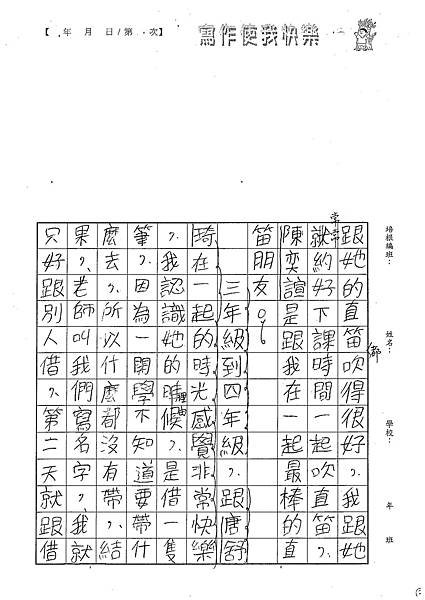 【 年 月 日/第 次】
寫作使我快樂
培根編班:
姓名:
學校:
年 班
常常
跟她的直笛吹得很好,我跟她
就約好下課時間一起吹直笛,
陳奕諠是跟我在一起最棒的直
笛朋友。
三年級到四年級,跟唐舒
琦在一起的時光感覺非常快樂
,我認識她的時候,是借一隻
理由
筆,因為一開學不知道要帶什
麼去,所以什麼都沒有帶,結
果,老師叫我們寫名字,我就
只好跟別人借,第二天就跟借